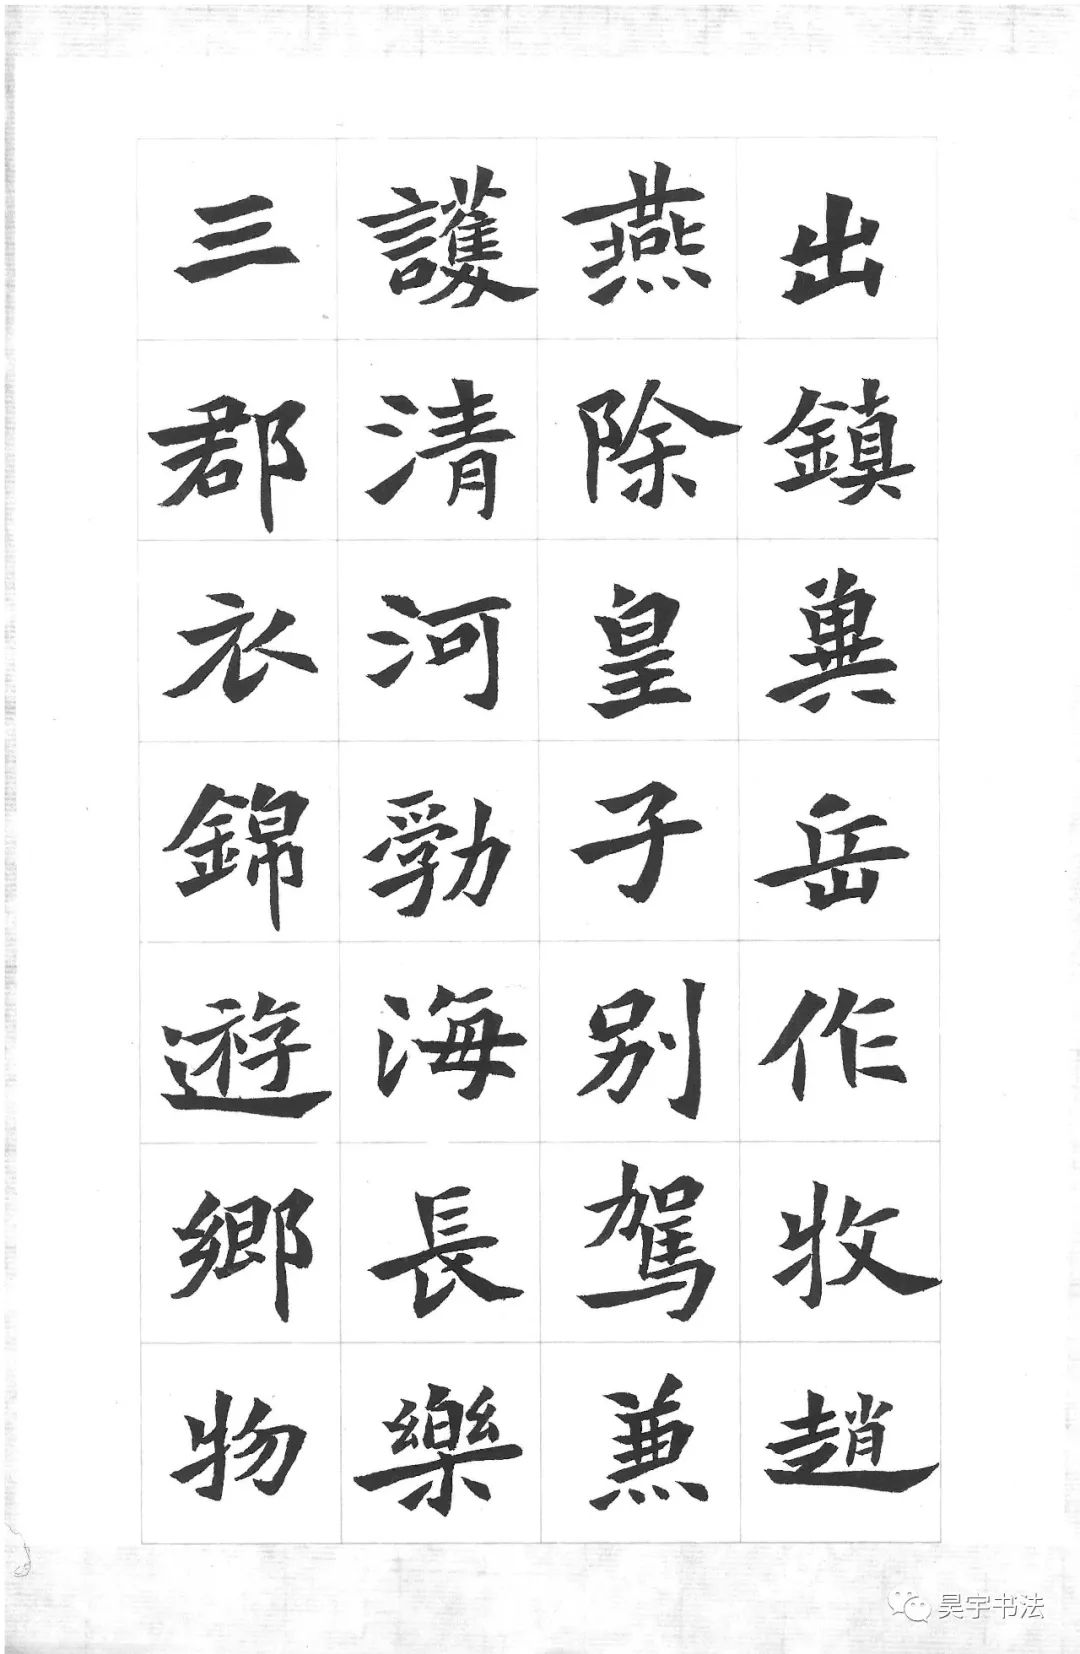 出鎮冀岳作牧趙
燕除皇子別駕兼
護清河勃海長樂
三郡衣錦遊鄉物
昊宇书法